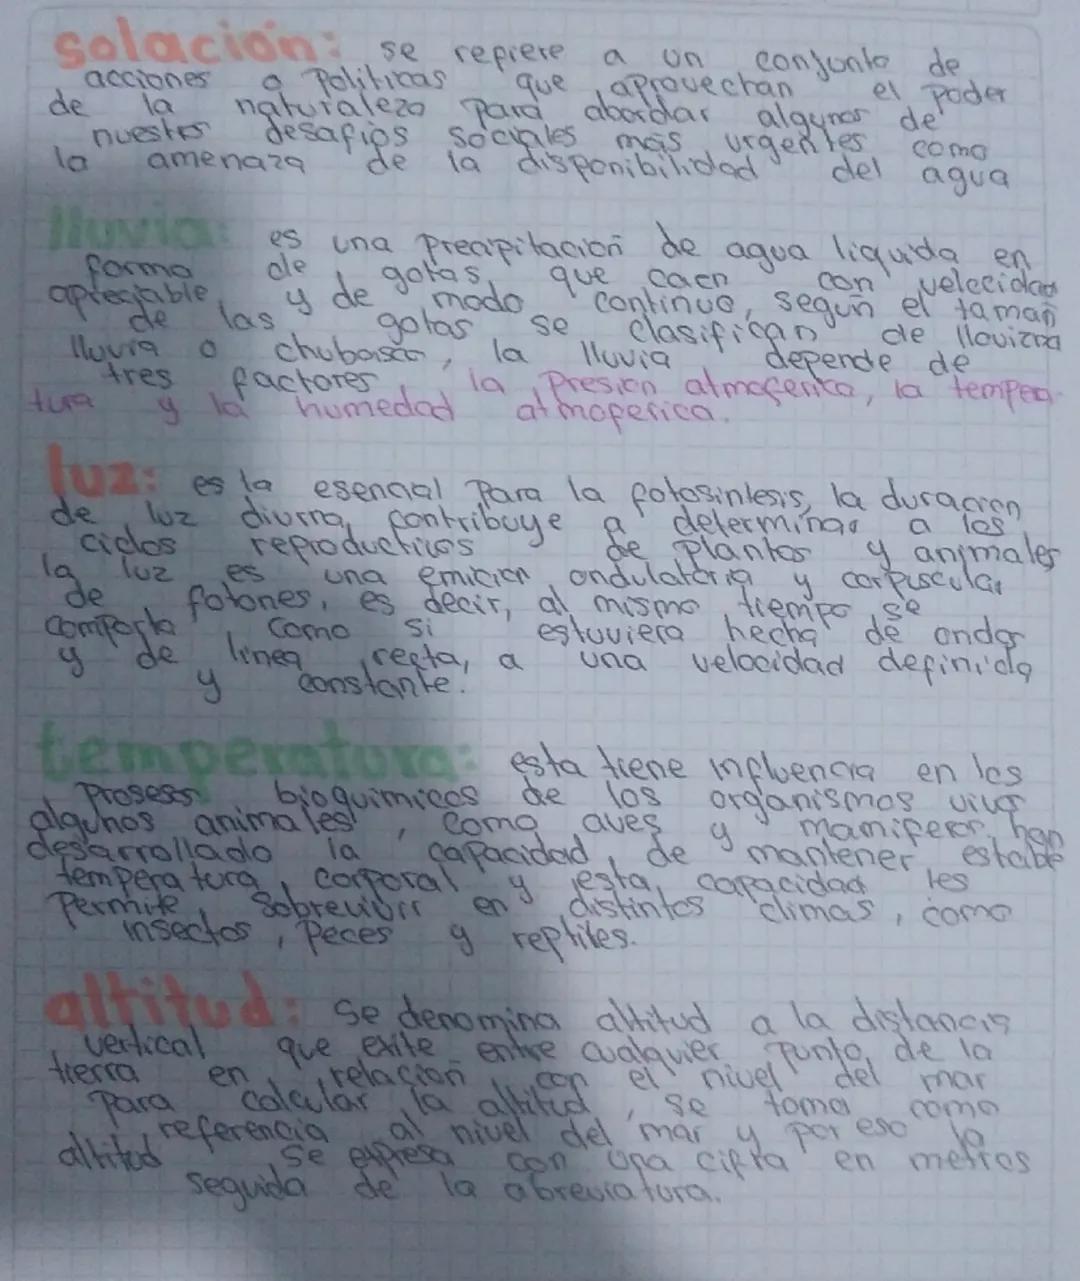 solación: se repiere a un conjunto de
acciones o Politicas que aprovechan el poder
de la naturaleza para abordar algunos de
nuestros desafios sociales más urgentes como
la amenaza de la disponibilidad del agua
lluvia: es una precipitación de agua liquida en
forma de gotas que caen con velecidad
apreciable, y de modo continuo, según el tamañ
de las gotas se clasifican de llovizna
lluvia o chubasco, la lluvia depende de
tres factores la Presion atmosferica, la tempera
tura y la humedad atmosferica.
luz: es la esencial Para la fotosintesis, la duración
de luz diurna, contribuye a determinar a los
ciclos reproductivos de Plantas y animales
la luz es una emición ondulatoria y corpuscular
de fotones, es decir, al mismo tiempo se
comporta como si estuviera hecha de ondas
y de linea recta, a una velocidad definida
y constante.
temperatura: esta tiene influencia en los
prosess bioquimicos de los organismos vivos
algunos animales, como aves y mamiferos, han
desarrollado la capacidad, de mantener estable
temperatura, corporal y esta, capacidad les
Permite, sobrevivir en distintos climas, como
insectos, peces y reptiles.
altitud: se denomina altitud a la distancia
vertical que exite entre cualquier Punto, de la
tierra en relación con el nivel del mar
Para calcular la altitud, se toma como
referencia al nivel del mar y por eso la
altitud se expresa con una cifra en metros
seguida de la abreviatura.